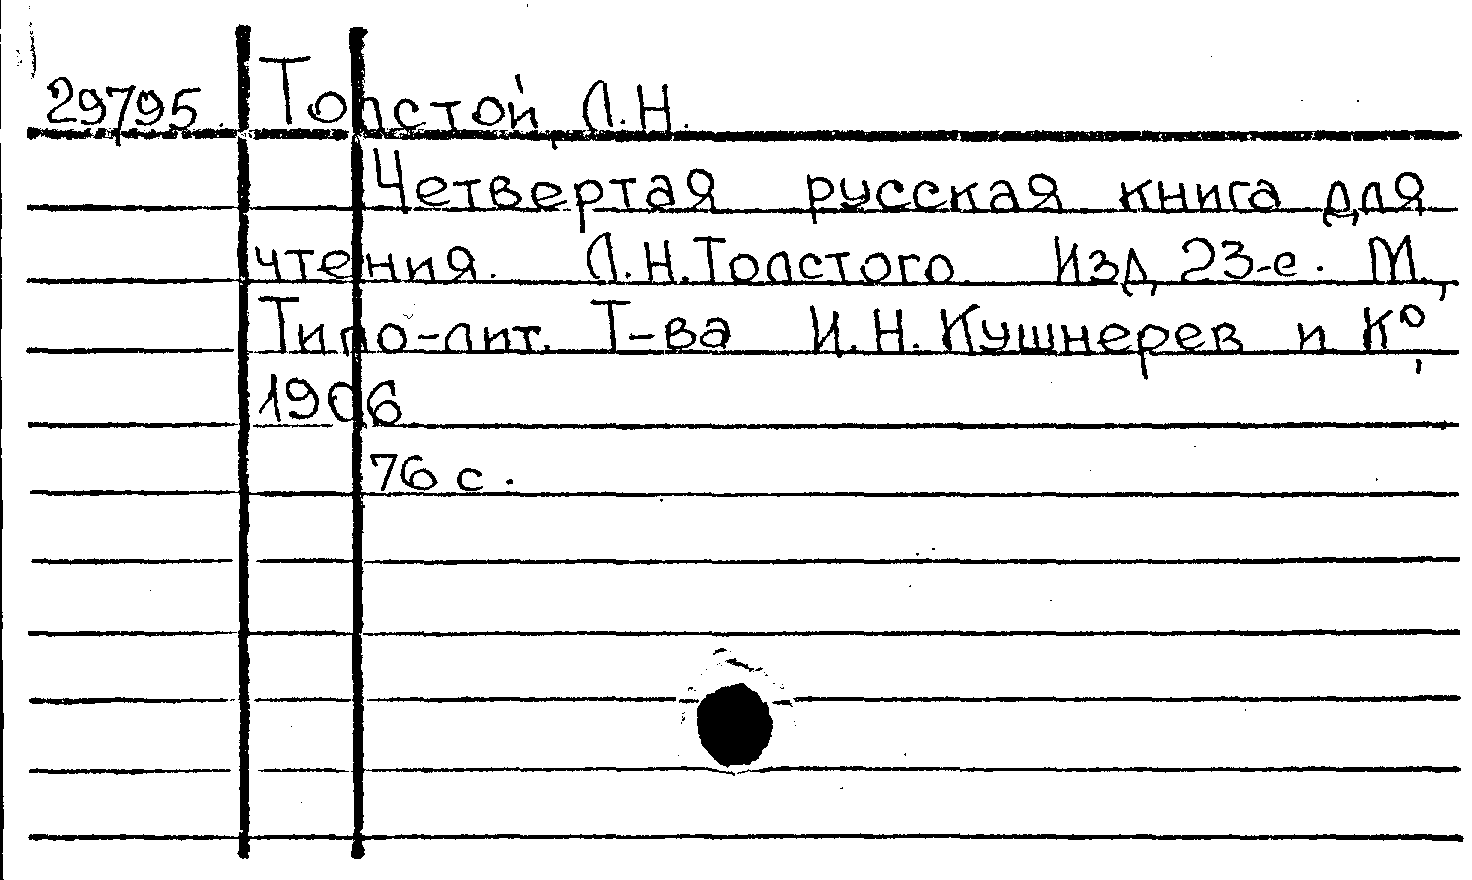 29795. Толстой, Л.Н.
Четвертая русская книга для
чтения. Л.Н.Толстого Изд 23-е. М.,
Типо-лит. Т-ва И.Н.Кушнерев и К°,
1906
76 с.